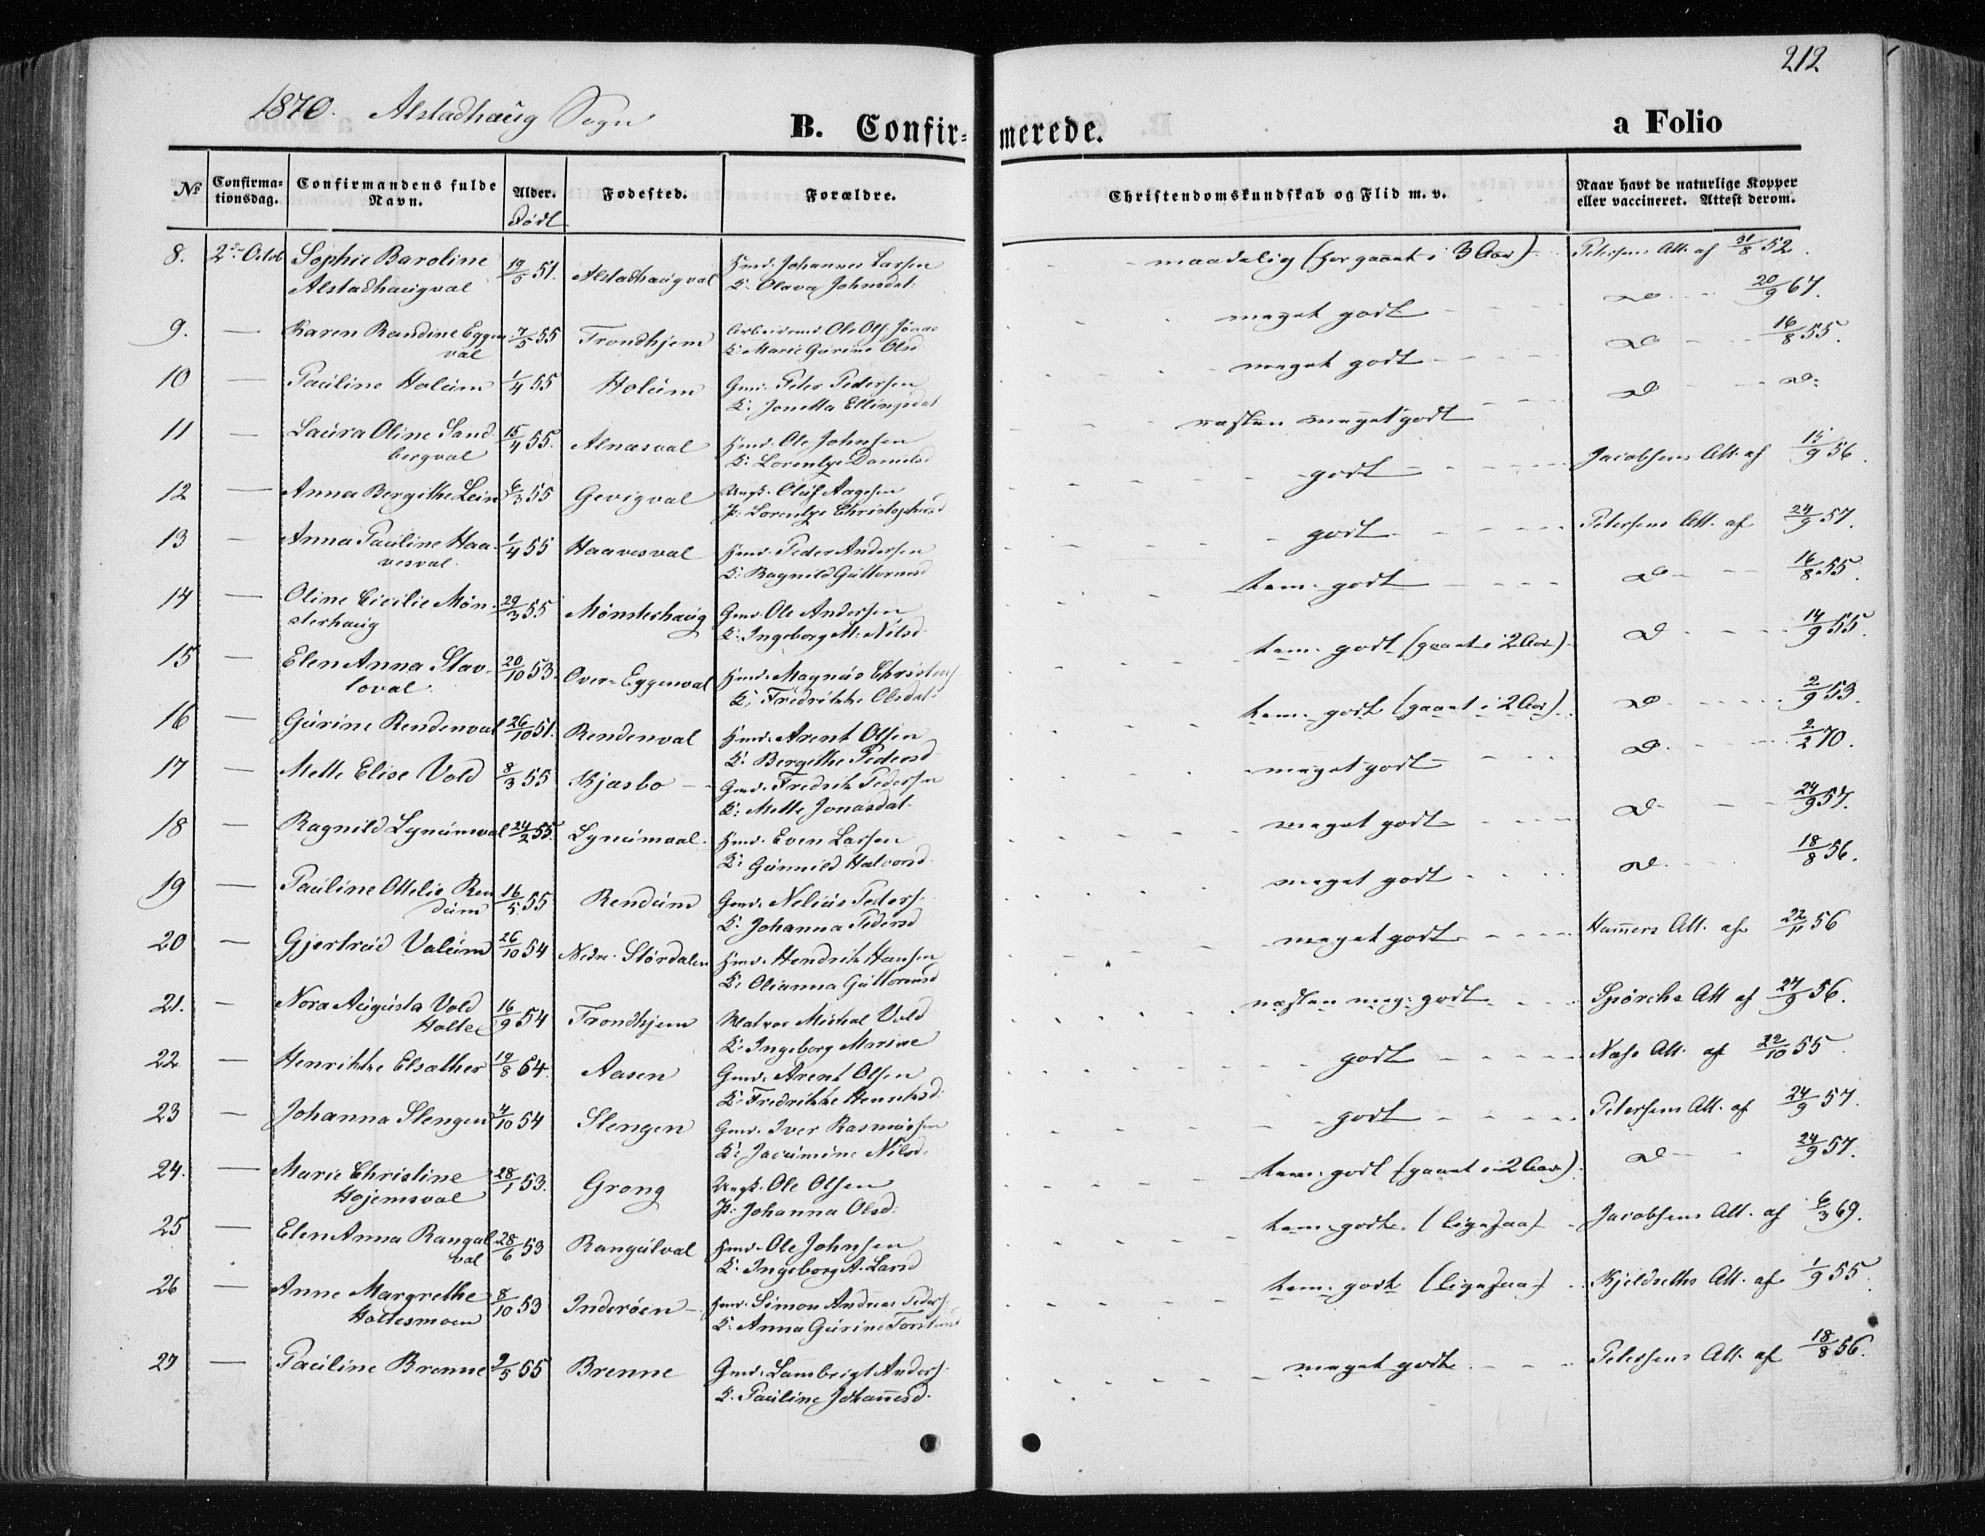 212
1870. Alstadhaug Sogn
B. Confirmerede.
a Folio
No
Confirmationsdag.
Confirmandens fulde Navn.
Alder.
Født
Fødested.
Forældre.
Christendomskundskab og Flid m. v.
Naar havt de naturlige Kopper eller vaccineret. Attest derom.
8. 2den Octob Sophie Baroline 19/5 51. Alstadhaugval Hmd. Johannes Larsen maadelig (her gaaet i 3 Aar) Petersens Att. af 31/8 52.
Alstadhaugval K. Olava Johnsdat.
9. — Karen Randine Eggen 7/5 55 Trondhjem Arbeidsmd Ole Ols. meget godt D 20/9 67.
val K. Marie Gurine Olsd
10 — Pauline Holum 1/4 55 Holum Gmd. Peter Pedersen meget godt D 16/8 55.
K. Jonetta Ellingsdat
11 — Laura Oline Sand 15/4 55. Alnæsval Hmd. Ole Johnsen næsten meget godt D D
bergval K. Lorentze Danielsd
12 — Anna Bergithe Lein 6/3 55 Gevigval Ungk. Oluf Aagesen godt Jacobsens Att. af 15/9 56.
P. Lorentze Christophersd
13 — Anna Pauline Haa- 1/4 55 Haavesval Hmd. Peder Andersen godt Petersens Att. af 24/9 57.
vesval K. Ragnild Guttormsd
14 — Oline Cicilie Møn- 29/3 55 Mønsterhaug Gmd. Ole Andersen tem. godt D 16/8 55.
sterhaug K. Ingeborg M. Nilsd.
15 — Elen Anna Stav- 20/10 53. Over-Eggenval Hmd. Magnus Christens tem. godt (gaaet i 2 Aar) D 14/9 55.
loval K. Fredrikke Olsdat
16 — Gurine Rendenval 26/10 51. Rendenval Hmd. Arent Olsen tem. godt (gaaet i 2 Aar) D 2/9 53.
K. Bergithe Pedersd
17 — Mette Elise Vold 8/3 55 Kjæsbo Gmd. Fredrik Pedersen meget godt D 2/2 70.
K. Mette Jonasdat.
18 — Ragnild Lynumval 24/2 55. Lynumaal Hmd. Even Larsen meget godt D 24/9 57.
K. Gunnild Halvorsd.
19 — Pauline Ottelie Ren 16/5 55 Rendum Gmd. Nelius Peders. meget godt D 18/8 56.
dum K. Johanna Pedersd
20 — Gjertrud Valum 26/10 54 Nedre Størdalen Hmd. Hendrik Hansen meget godt Hamers Att. af 22/11 56
K. Olianna Guttormsd
21. — Nora Augusta Vold 16/9 54 Trondhjem Matros Michal Vold næsten meg. godt Spørcks Att af 27/9 56.
Holte K. Ingeborg Marine
22 — Henrikke Elsæther 19/8 54. Aasen Gmd. Arent Olsen godt Næss Att. af 22/10 55.
K. Fredrikke Henriksd.
23 — Johanna Slengen 4/10 54 Slengen Gmd. Iver Rasmussen godt Petersens Att. af 24/9 57.
K. Jacumine Nilsd.
24. — Marie Christine 28/1 53. Grong Ungk. Ole Olsen tem. godt (gaaet i 2 Aar) D 24/9 57.
Hojemsval P. Johanna Olsd.
25 — Elen Anna Rangul 28/6 53 Rangulval Hmd. Ole Johnsen tem. godt. (ligesaa) Jacobsens Att. af 6/3 69.
val K. Ingeborg A. Larsd
26 — Anne Margrethe 8/10 53 Inderøen Hmd. Simon Andreas Peders. tem. godt (ligesaa) Kjeldseths Att. af 1/9 55.
Holtesmoen K. Anna Gurine
27 — Pauline Brenne 9/5 55 Brenne Gmd. Lambrigt Anders. meget godt Petersens Att. af 18/8 56.
K. Pauline Johannesd.